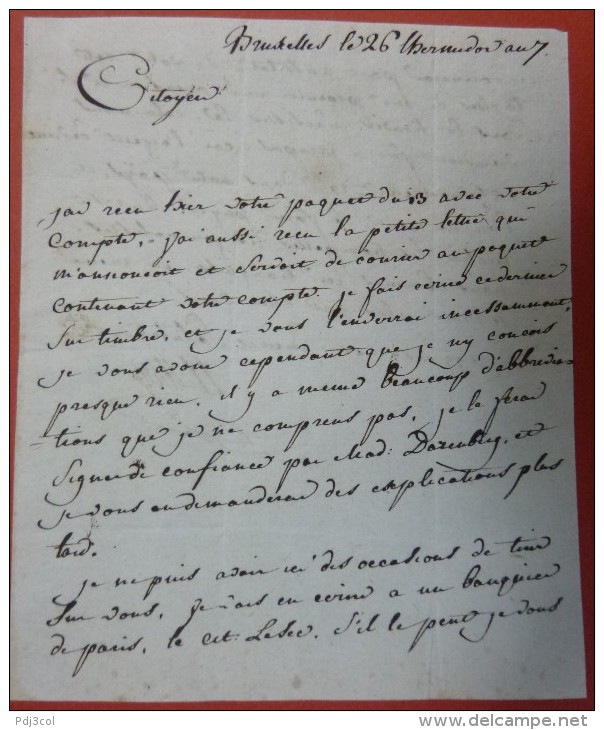 Bruxelles le 26 thermidor an 7.
Citoyen
j'ai recu hier votre paquet du 13 avec votre
Compte, j'ai aussi recu la petite lettre qui
m'annoncoit et servoit de courier au paquet
contenant votre compte. je fais ecrire ce dernier
sur timbre, et je vous l'enverrai incessamment,
je vous avoue cependant que je ny concois
presque rien, il y a meme beaucoup d'abbrevia=
=tions que je ne comprens pas, je le ferai
signer de confiance par Mad: et
je vous en demanderai des explications plus
tard.
je ne puis avoir ici des occasions de tirer
sur vous, je vais en ecrire a un banquier
de paris, le cit: Lesec, s'il le peut je vous
Pdj3col
www.delcampe.net